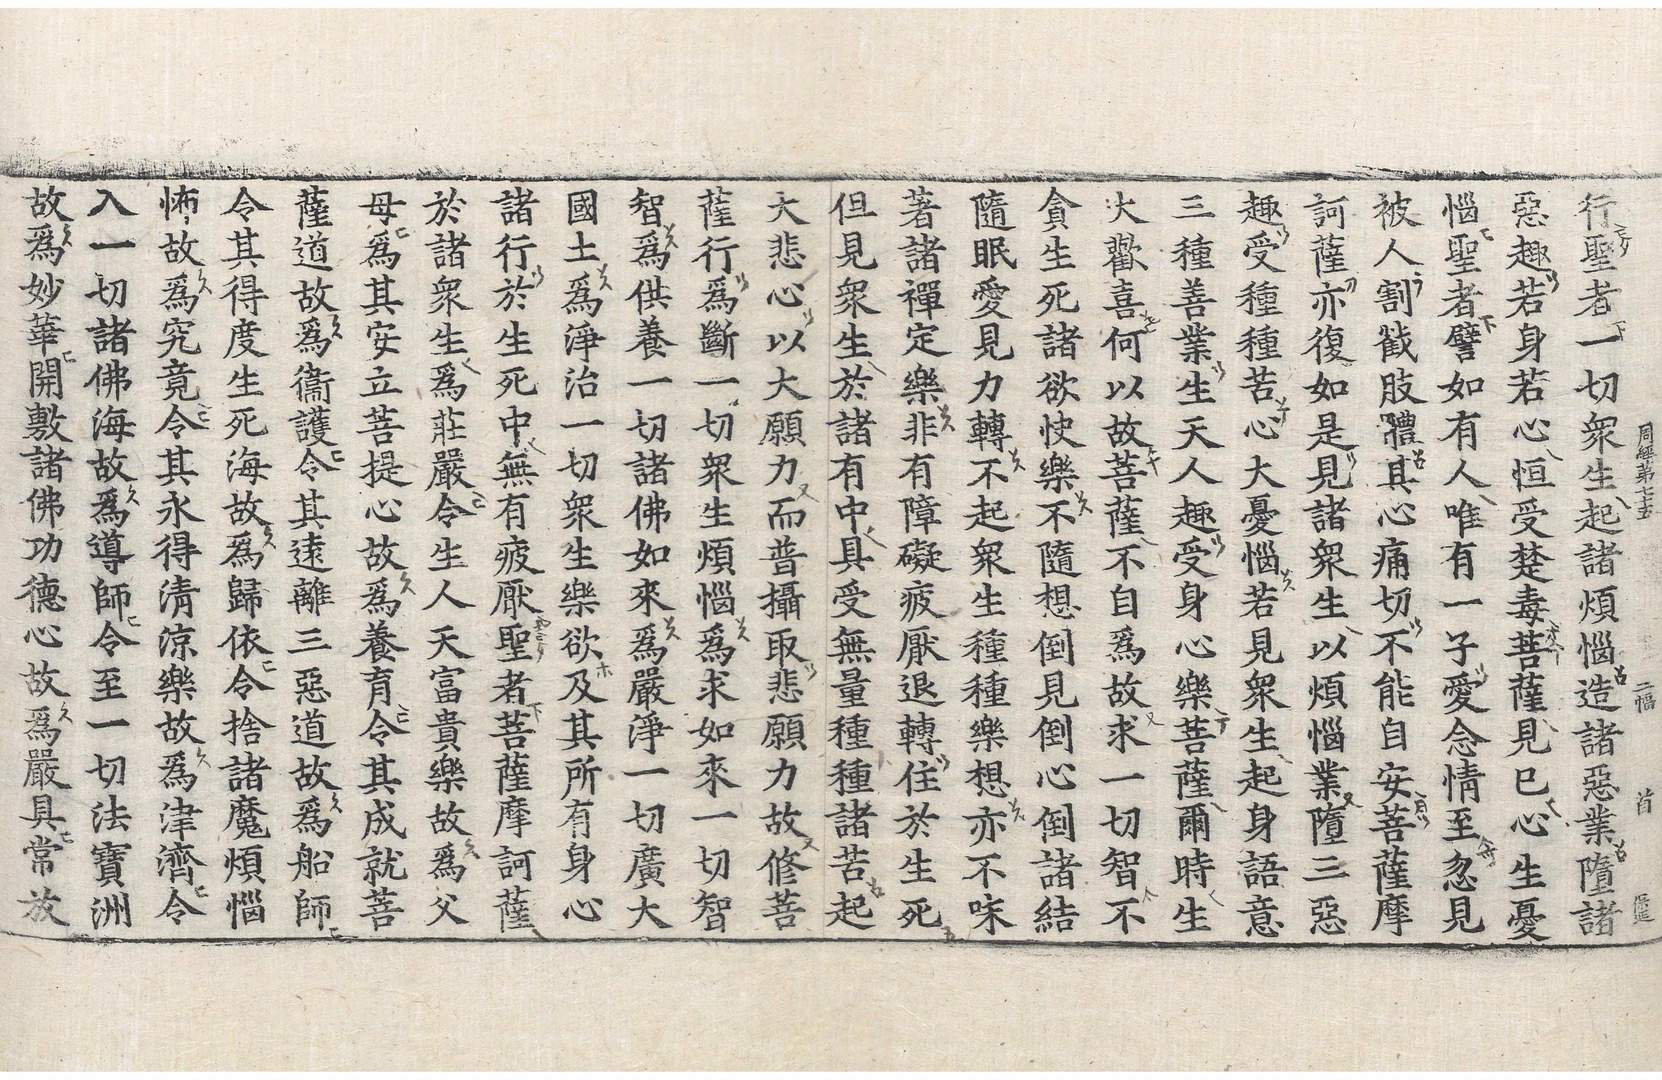 行聖者一切衆生起諸煩惱造諸惡業墮諸
惡趣若身若心恒受楚毒菩薩見已心生憂
惱聖者譬如有人唯有一子愛念情至忽見
被人割截肢體其心痛切不能自安菩薩摩
訶薩亦復如是見諸衆生以煩惱業墮三惡
趣受種種苦心大憂惱若見衆生起身語意
三種善業生天人趣受身心樂菩薩爾時生
大歡喜何以故菩薩不自爲故求一切智不
貪生死諸欲快樂不隨想倒見倒心倒諸結
隨眠愛見力轉不起衆生種種樂想亦不味
著諸禪定樂非有障礙疲厭退轉住於生死
但見衆生於諸有中具受無量種種諸苦起
大悲心以大願力而普攝取悲願力故修菩
薩行爲斷一切衆生煩惱爲求如來一切智
智爲供養一切諸佛如來爲嚴淨一切廣大
國土爲淨治一切衆生樂欲及其所有身心
諸行於生死中無有疲厭聖者菩薩摩訶薩
於諸衆生爲莊嚴令生人天富貴樂故爲父
母爲其安立菩提心故爲養育令其成就菩
薩道故爲衞護令其遠離三惡道故爲船師
令其得度生死海故爲歸依令捨諸魔煩惱
怖故爲究竟令其永得清涼樂故爲津濟令
入一切諸佛海故爲導師令至一切法寶洲
故爲妙華開敷諸佛功德心故爲嚴具常放